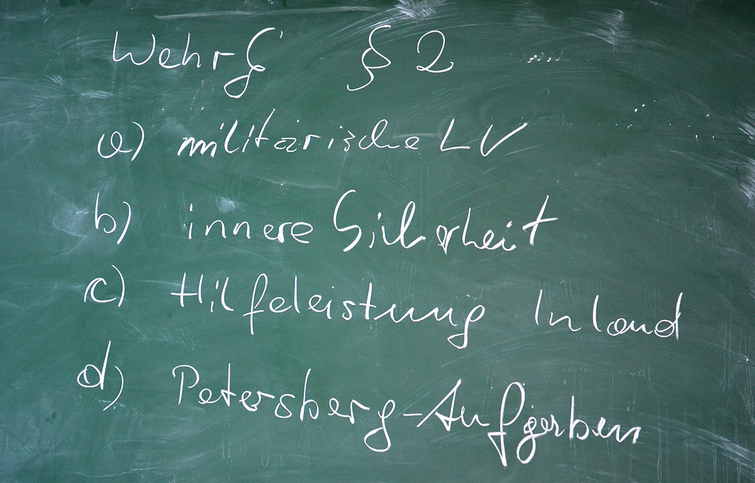 WehrG § 2
a) militärische LV
b) innere Sicherheit
c) Hilfeleistung Inland
d) Petersberg-Aufgaben